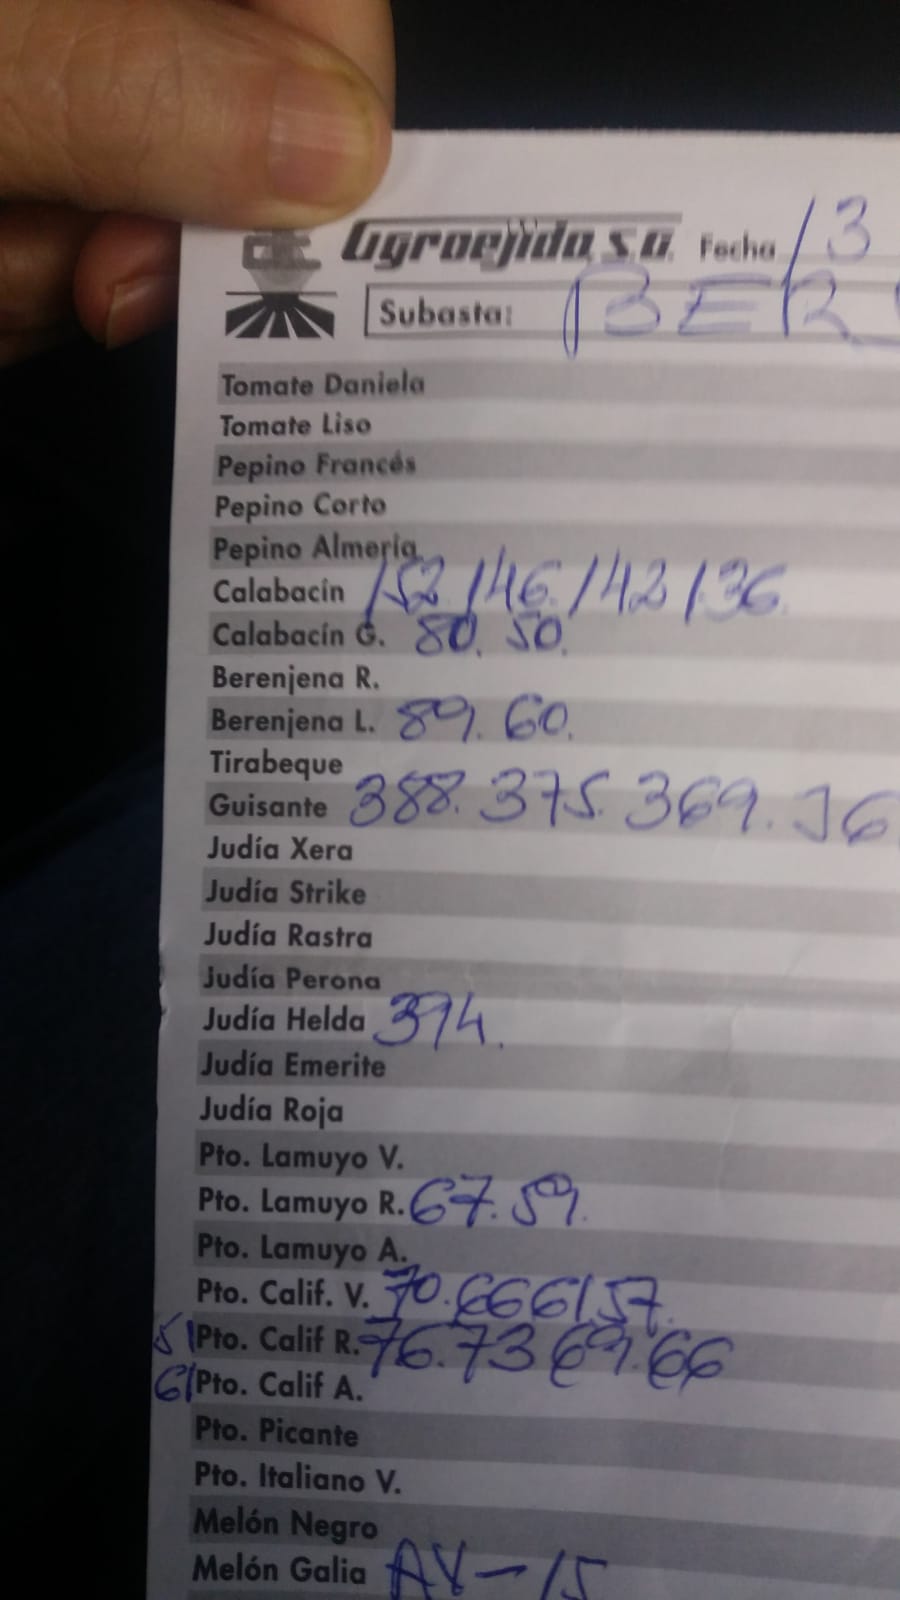 Agroejido, S.A. Fecha 13
Subasta: BER
Tomate Daniela
Tomate Liso
Pepino Francés
Pepino Corto
Pepino Almería
Calabacín 152 146. 142 136.
Calabacín G. 80. 50.
Berenjena R.
Berenjena L. 89. 60.
Tirabeque
Guisante 388. 375. 369. 36
Judía Xera
Judía Strike
Judía Rastra
Judía Perona
Judía Helda 394.
Judía Emerite
Judía Roja
Pto. Lamuyo V.
Pto. Lamuyo R. 67. 59.
Pto. Lamuyo A.
Pto. Calif. V. 70. 66 61 57.
51 Pto. Calif R. 76. 73 69. 66
61 Pto. Calif A.
Pto. Picante
Pto. Italiano V.
Melón Negro
Melón Galia AV-15